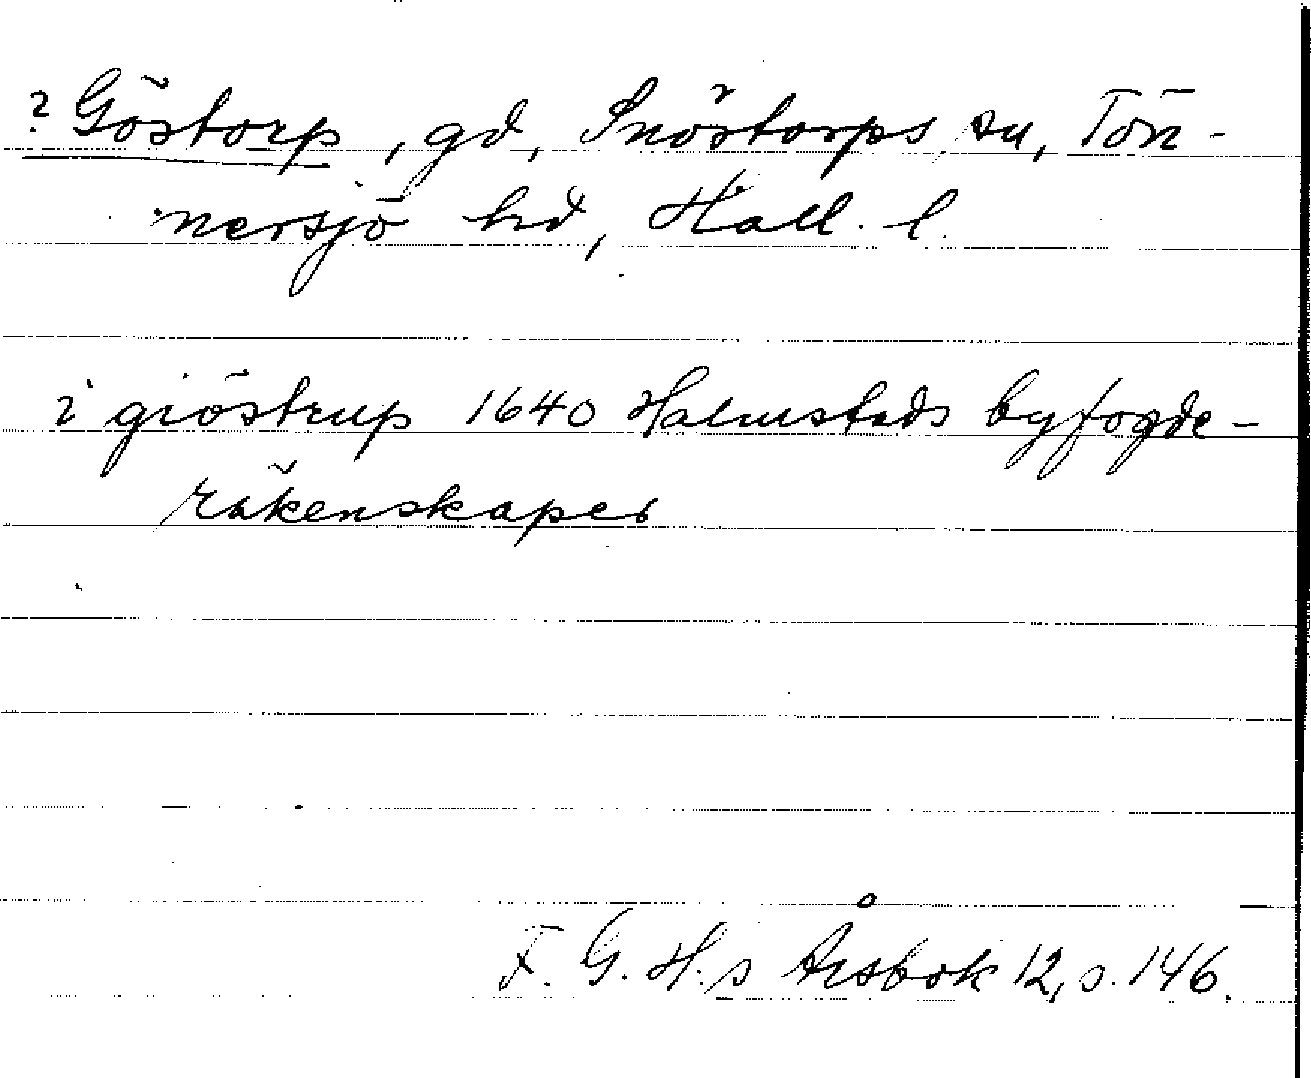 ? Göstorp, gd, Snöstorps sn, Tön-
nersjö hd, Hall. l.
i giöstrup 1640 Halmstads byfogde-
räkenskaper
F. G. H:s Årsbok 12, s. 146.